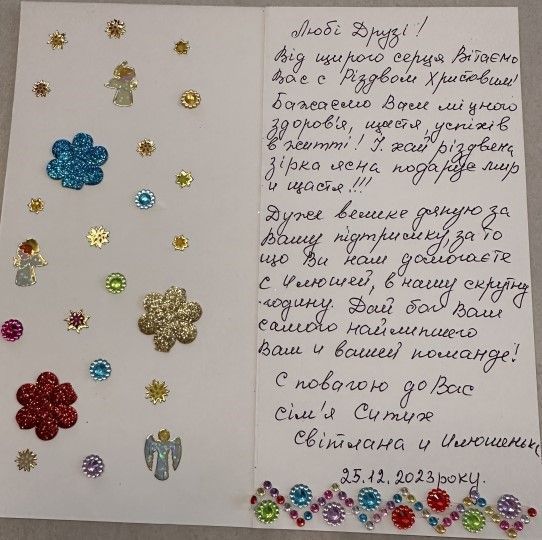 Любі Друзі!
Від щирого серця Вітаємо
Вас с Різдвом Христовим!
Бажаємо Вам міцного
здоров'я, щастя, успіхів
в житті! І хай різдвяна
зірка ясна подарує мир
и щастя!!!
Дуже велике дякую за
Вашу підтримку, за то
що Ви нам домогаєте
с Илюшей, в нашу скрутну
годину. Дай бог Вам
самого найлипшего
Вам и вашей команде!
С повагою до Вас
сім'я Ситих
Світлана и Илюшенька
25.12.2023 року.